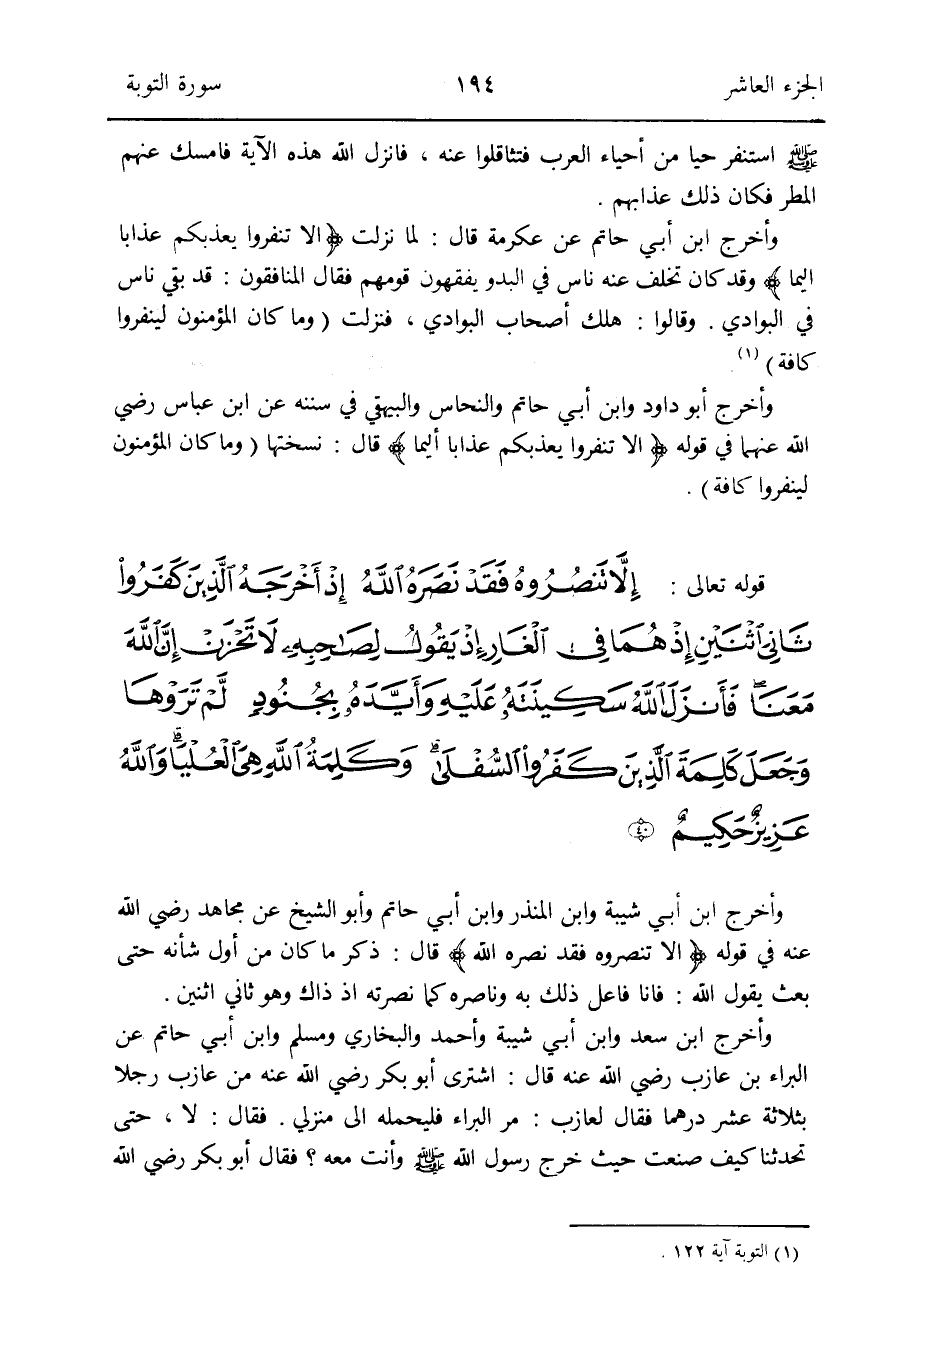 الجزء العاشر ١٩٤ سورة التوبة
ﷺ استنفر حيا من أحياء العرب فتثاقلوا عنه ، فانزل الله هذه الآية فامسك عنهم
المطر فكان ذلك عذابهم .
وأخرج ابن أبي حاتم عن عكرمة قال : لما نزلت ﴿ الا تنفروا يعذبكم عذابا
اليما ﴾ وقد كان تخلف عنه ناس في البدو يفقهون قومهم فقال المنافقون : قد بقي ناس
في البوادي . وقالوا : هلك أصحاب البوادي ، فنزلت ( وما كان المؤمنون لينفروا
كافة ) (١)
وأخرج أبو داود وابن أبي حاتم والنحاس والبيهقي في سننه عن ابن عباس رضي
الله عنهما في قوله ﴿ الا تنفروا يعذبكم عذابا أليما ﴾ قال : نسختها ( وما كان المؤمنون
لينفروا كافة ) .
قوله تعالى : إِلَّا تَنصُرُوهُ فَقَدْ نَصَرَهُ ٱللَّهُ إِذْ أَخْرَجَهُ ٱلَّذِينَ كَفَرُواْ
ثَانِىَ ٱثْنَيْنِ إِذْ هُمَا فِى ٱلْغَارِ إِذْ يَقُولُ لِصَٰحِبِهِۦ لَا تَحْزَنْ إِنَّ ٱللَّهَ
مَعَنَا ۖ فَأَنزَلَ ٱللَّهُ سَكِينَتَهُۥ عَلَيْهِ وَأَيَّدَهُۥ بِجُنُودٍ لَّمْ تَرَوْهَا
وَجَعَلَ كَلِمَةَ ٱلَّذِينَ كَفَرُواْ ٱلسُّفْلَىٰ ۗ وَكَلِمَةُ ٱللَّهِ هِىَ ٱلْعُلْيَا ۗ وَٱللَّهُ
عَزِيزٌ حَكِيمٌ ٤٠
وأخرج ابن أبي شيبة وابن المنذر وابن أبي حاتم وأبو الشيخ عن مجاهد رضي الله
عنه في قوله ﴿ الا تنصروه فقد نصره الله ﴾ قال : ذكر ما كان من أول شأنه حتى
بعث يقول الله : فانا فاعل ذلك به وناصره كما نصرته اذ ذاك وهو ثاني اثنين .
وأخرج ابن سعد وابن أبي شيبة وأحمد والبخاري ومسلم وابن أبي حاتم عن
البراء بن عازب رضي الله عنه قال : اشترى أبو بكر رضي الله عنه من عازب رجلا
بثلاثة عشر درهما فقال لعازب : مر البراء فليحمله الى منزلي . فقال : لا ، حتى
تحدثنا كيف صنعت حيث خرج رسول الله ﷺ وأنت معه ؟ فقال أبو بكر رضي الله
(١) التوبة آية ١٢٢ .